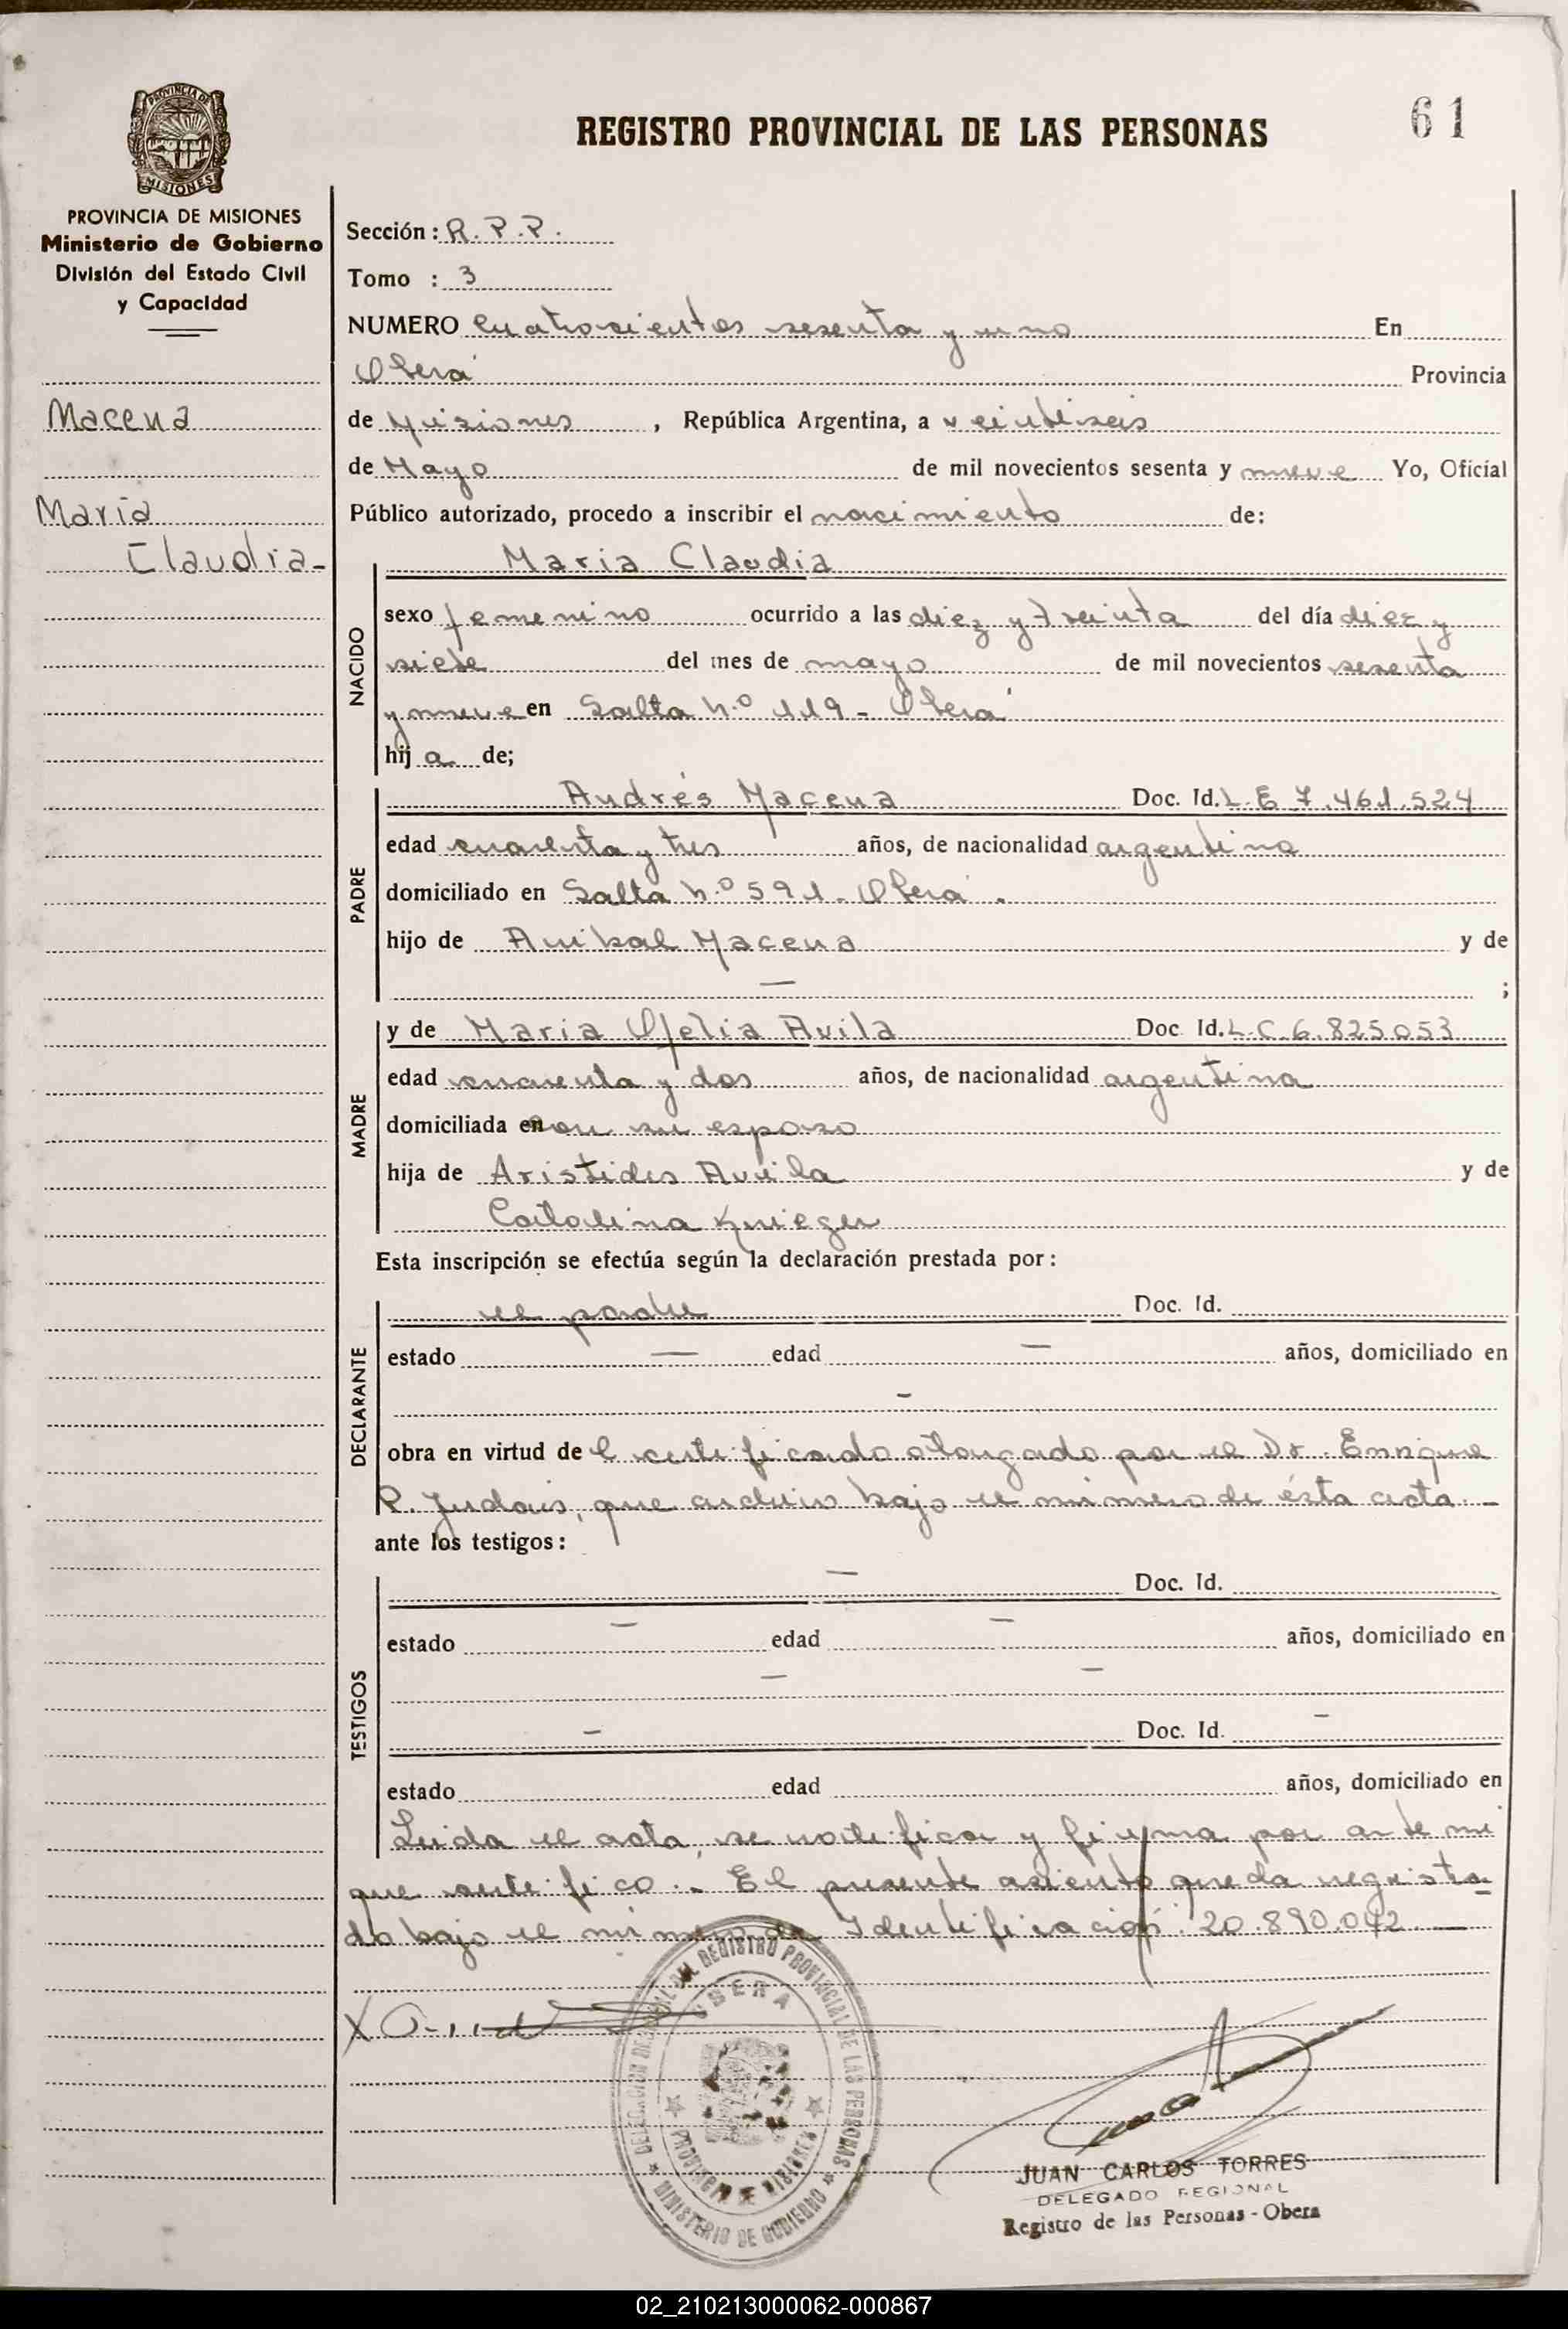 REGISTRO PROVINCIAL DE LAS PERSONAS
61
PROVINCIA DE
MISIONES
PROVINCIA DE MISIONES
Ministerio de Gobierno
División del Estado Civil
y Capacidad
Macena
Maria
Claudia-
Sección: R.P.P.
Tomo : 3
NUMERO Cuatrocientos sesenta y uno En
Oberá Provincia
de Misiones , República Argentina, a veintiseis
de Mayo de mil novecientos sesenta y nueve Yo, Oficial
Público autorizado, procedo a inscribir el nacimiento de:
Maria Claudia
NACIDO
sexo femenino ocurrido a las diez y treinta del día diez y
siete del mes de mayo de mil novecientos sesenta
y nueve en Salta N.º 119 - Oberá
hij a de;
PADRE
Andrés Macena Doc. Id. L.E 7.461.524
edad cuarenta y tres años, de nacionalidad argentina
domiciliado en Salta N.º 591 - Oberá.
hijo de Anibal Macena y de
— ;
MADRE
y de Maria Ofelia Avila Doc. Id. L.C. 6.825.053
edad cuarenta y dos años, de nacionalidad argentina
domiciliada en con su esposo
hija de Aristides Avila y de
Catalina Krieger
Esta inscripción se efectúa según la declaración prestada por:
DECLARANTE
el padre Doc. Id.
estado — edad — años, domiciliado en
-
obra en virtud de l certificado otorgado por el Dr. Enrique
P. que archivo bajo el número de ésta acta. -
ante los testigos:
TESTIGOS
— Doc. Id.
estado — edad — años, domiciliado en
— —
- Doc. Id. -
estado edad años, domiciliado en
Leida el acta, se notifica y firma por ante mi
que certifico.- El presente asiento queda registra-
do bajo el número de Identificación: 20.890.042 —
DELEGACION REGIONAL DEL REGISTRO PROVINCIAL DE LAS PERSONAS
OBERA
PROVINCIA DE MISIONES
MINISTERIO DE GOBIERNO
JUAN CARLOS TORRES
DELEGADO REGIONAL
Registro de las Personas - Obera
02_210213000062-000867